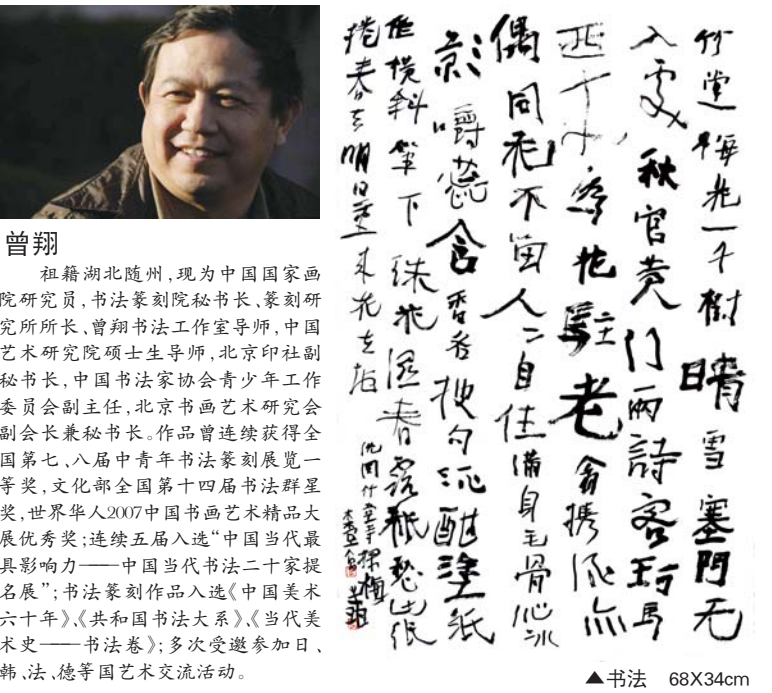 曾翔
祖籍湖北随州,现为中国国家画
院研究员,书法篆刻院秘书长、篆刻研
究所所长、曾翔书法工作室导师,中国
艺术研究院硕士生导师,北京印社副
秘书长,中国书法家协会青少年工作
委员会副主任,北京书画艺术研究会
副会长兼秘书长。作品曾连续获得全
国第七、八届中青年书法篆刻展览一
等奖,文化部全国第十四届书法群星
奖,世界华人2007中国书画艺术精品大
展优秀奖;连续五届入选“中国当代最
具影响力——中国当代书法二十家提
名展”;书法篆刻作品入选《中国美术
六十年》、《共和国书法大系》、《当代美
术史——书法卷》;多次受邀参加日、
韩、法、德等国艺术交流活动。
竹堂梅花一千樹晴雪塞門无
入处秋官黄门兩詩客珂馬
西为花駐老翁携酒亦
偶同花不留人人自住滿身毛骨沁冰
影嚼蕊含香各搜句酒酣塗紙
作横斜筆下珠花湿春露祇愁此纸
捲春去明日重来花在地
沈周竹堂寺探梅
▲书法 68X34cm